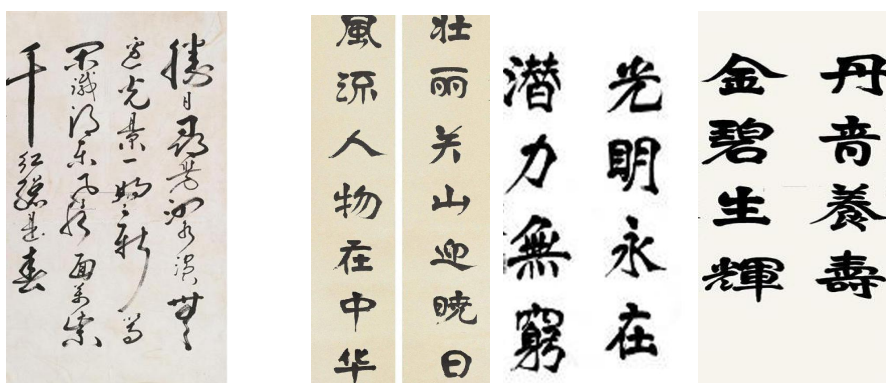 勝日尋芳泗水濱無
邊光景一時新等
閑識得東風面萬紫
千紅總是春
壮丽关山迎晓日
風流人物在中华
光明永在
潜力無窮
丹青養壽
金碧生輝